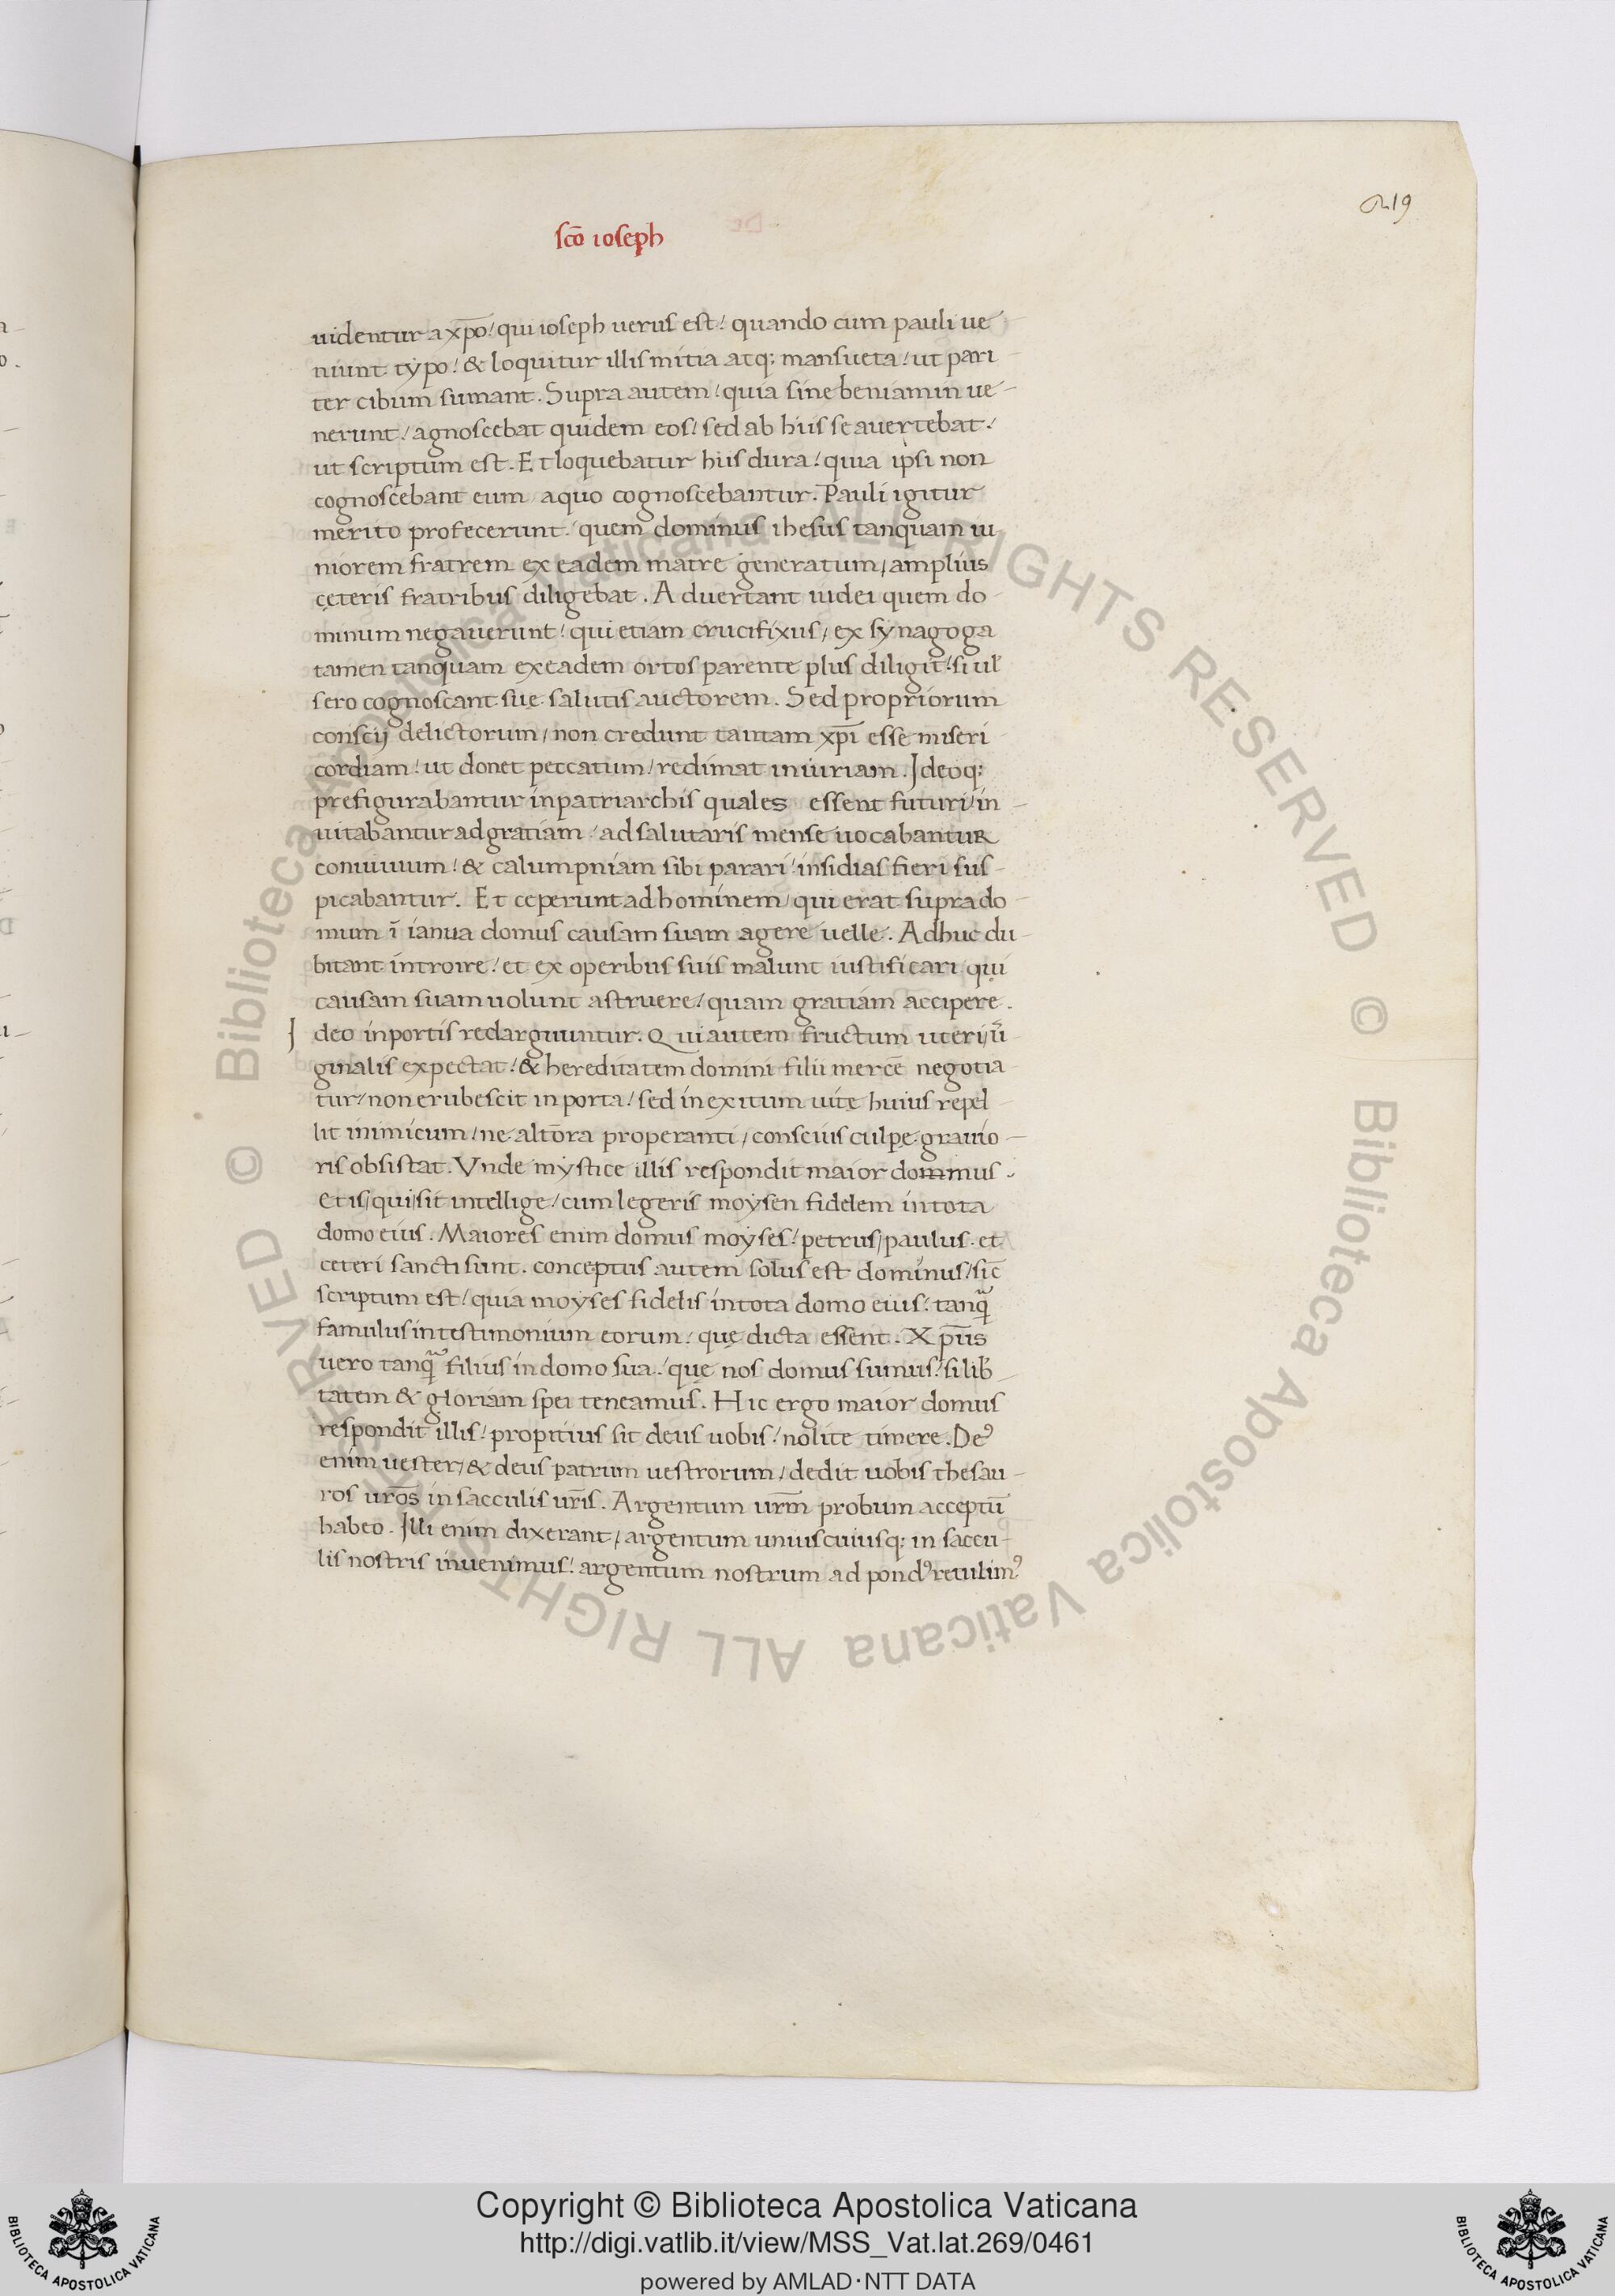 219
sc̄o ioseph
uidentur a xp̄o! qui ioseph uerus est! quando cum pauli ue
niunt typo! & loquitur illis mitia atq; mansueta! ut pari
ter cibum sumant. Supra autem! quia sine beniamin ue
nerunt! agnoscebat quidem eos! sed ab hiis se auertebat!
ut scriptum est. Et loquebatur hiis dura! quia ipsi non
cognoscebant eum a quo cognoscebantur. Pauli igitur
merito profecerunt! quem dominus ihesus tanquam iu
niorem fratrem ex eadem matre generatum/ amplius
cęteris fratribus diligebat. Aduertant iudei quem do
minum negauerunt! qui etiam crucifixus/ ex synagoga
tamen tanquam ex eadem ortos parente plus diligit! si ul̄
sero cognoscant suę salutis auctorem. Sed propriorum
conscij delictorum/ non credunt tantam xp̄i esse miseri
cordiam! ut donet peccatum/ redimat iniuriam. Ideoq;
prefigurabantur in patriarchis quales essent futuri! in
uitabantur ad gratiam! ad salutaris mensę uocabantur
conuiuium! & calumpniam sibi parari! insidias fieri sus
picabantur. Et ceperunt ad hominem/ qui erat supra do
mum ī ianua domus causam suam agere uelle. Adhuc du
bitant introire! et ex operibus suis malunt iustificari qui
causam suam uolunt astruere! quam gratiam accipere.
Ideo in portis redarguuntur. Qui autem fructum uteri ūi
ginalis expectat! & hereditatem domini filii mercē negotia
tur/ non erubescit in porta! sed in exitum uitę huius repel
lit inimicum/ ne altōra properanti/ conscius culpę grauio
ris obsistat. Vnde mystice illis respondit maior dominus.
Et is/ qui/ sit intellige/ cum legeris moysen fidelem in tota
domo eius. Maiores enim domus moyses! petrus/ paulus. et
ceteri sancti sunt. conceptus autem solus est dominus! sic̄
scriptum est! quia moyses fidelis in tota domo eius! tanqᷓ
famulus in testimonium eorum! quę dicta essent. Xp̄us
uero tanqᷓ filius in domo sua! quę nos domus sumus! si lib̄
tatem & gloriam spei teneamus. Hic ergo maior domus
respondit illis! propitius sit deus uobis! nolite timere. De⁹
enim uester/ & deus patrum uestrorum/ dedit uobis thesau
ros ur̄os in sacculis ur̄is. Argentum ur̄m probum acceptū
habeo. Illi enim dixerant/ argentum uniuscuiusq; in saccu
lis nostris inuenimus! argentum nostrum ad pond⁹ retulim⁹
© Biblioteca Apostolica Vaticana ALL RIGHTS RESERVED © Biblioteca Apostolica Vaticana ALL RIGHTS RESERVED
BIBLIOTECA APOSTOLICA VATICANA
Copyright © Biblioteca Apostolica Vaticana
http://digi.vatlib.it/view/MSS_Vat.lat.269/0461
powered by AMLAD·NTT DATA
BIBLIOTECA APOSTOLICA VATICANA